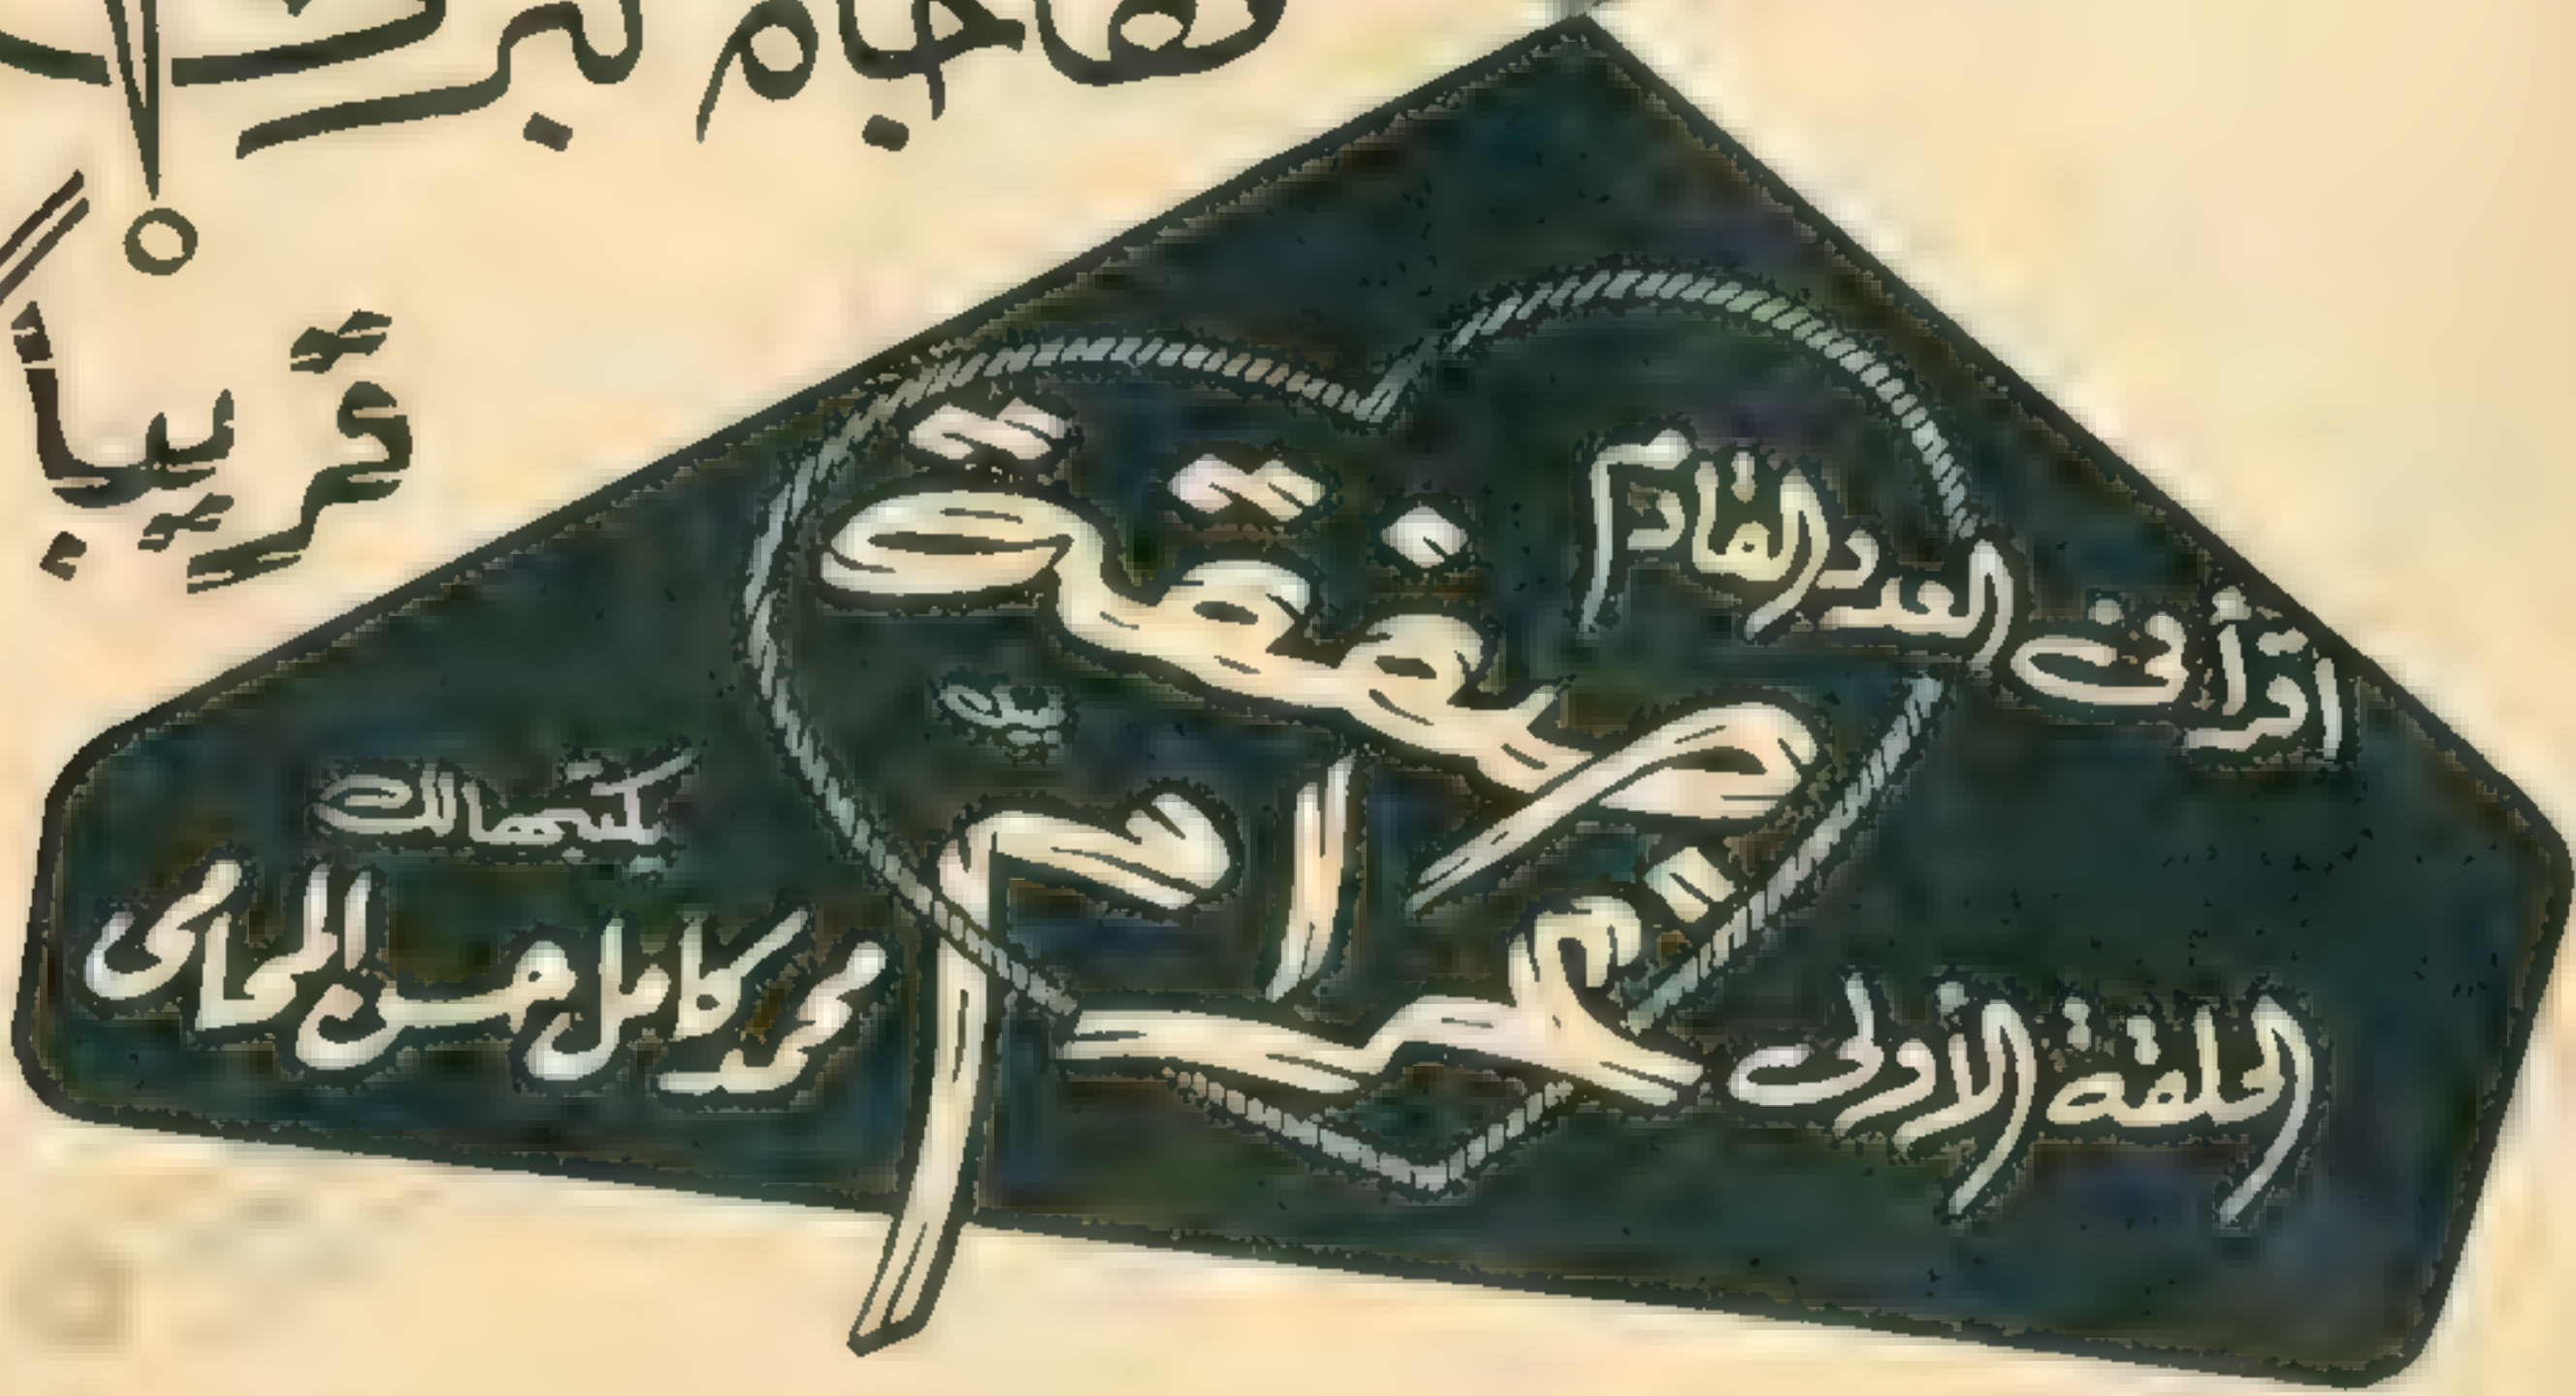 قريباً
اقرأ فى العدد القادم
صفقة
غرام
الحلقة الأولى
يكتبها لك
محمد كامل حسن المحامى